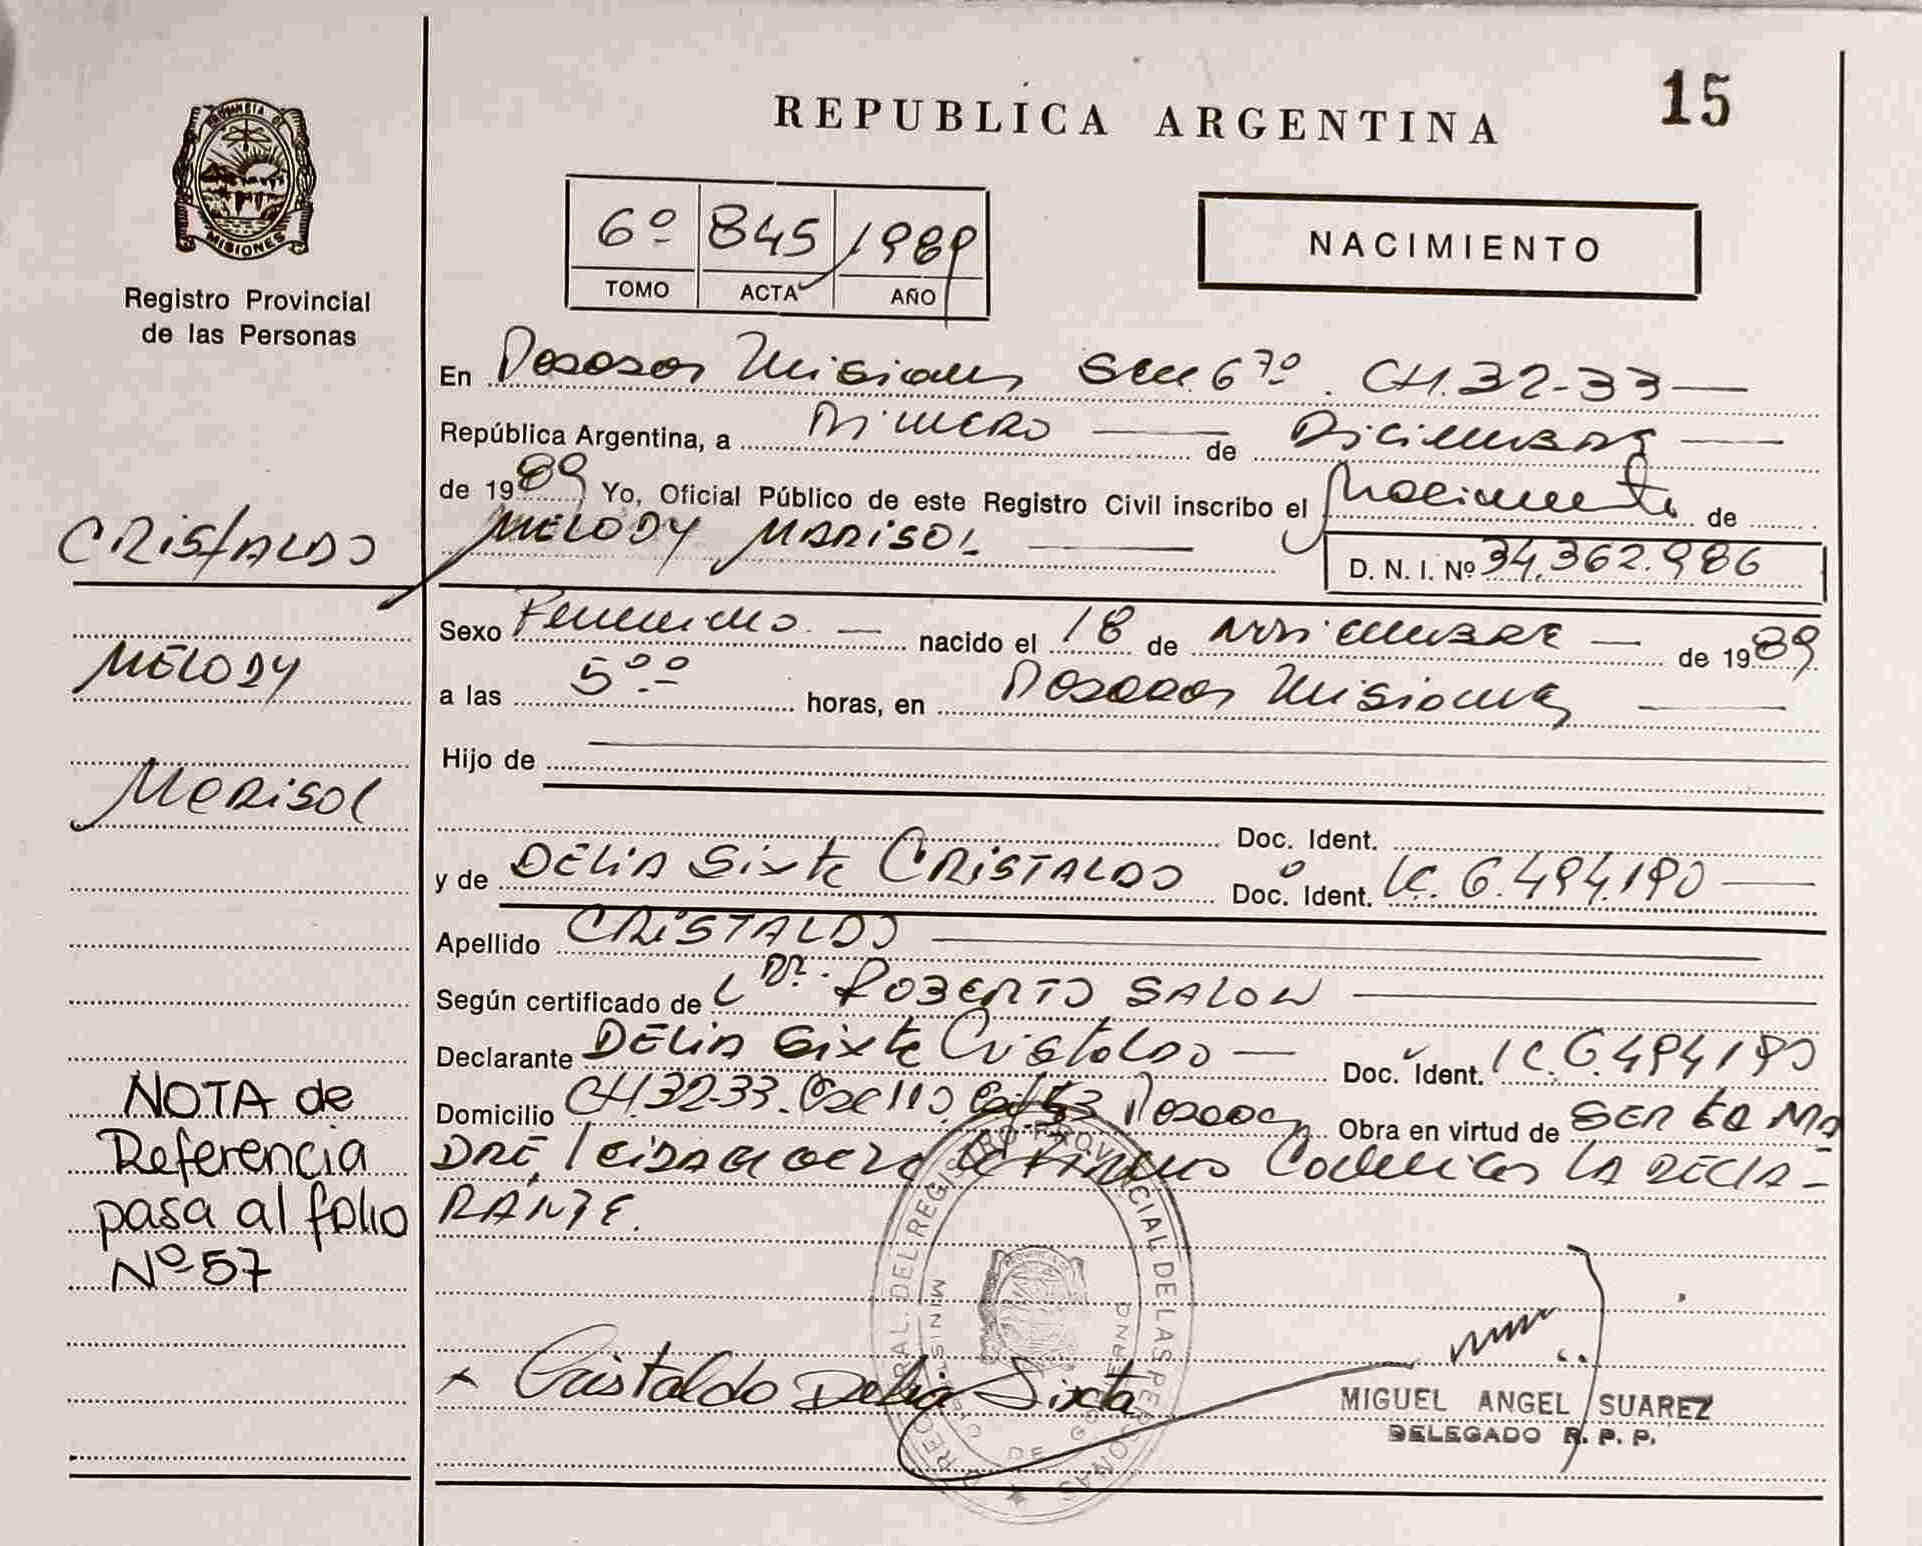 15
REPUBLICA ARGENTINA
PROVINCIA DE
MISIONES
Registro Provincial
de las Personas
6º 845 1989
TOMO ACTA AÑO
NACIMIENTO
En Posadas Misiones Secc 67º. CH.32-33
República Argentina, a Primero de Diciembre
de 1989, Yo, Oficial Público de este Registro Civil inscribo el Nacimiento de
CRISTALDO
MELODY MARISOL
D. N. I. Nº 34.362.986
Sexo Femenino nacido el 18 de Noviembre de 1989
MELODY
a las 5ºº horas, en Posadas Misiones
Hijo de
MARISOL
Doc. Ident.
y de DELIA SIXTA CRISTALDO Doc. Ident. LC. 6.494.190
Apellido CRISTALDO
Según certificado de L DR. ROBERTO SALOM
Declarante DELIA SIXTA CRISTALDO Doc. Ident. LC. 6.494.190
NOTA de
Referencia
pasa al folio
Nº 57
Domicilio CH.32-33. Posadas Obra en virtud de SER LA MA
DRE, Leida el acta la Firma Conmigo LA DECLA-
RANTE.
REGISTRO PROVINCIAL DE LAS PERSONAS
MINISTERIO DE GOBIERNO
x Cristaldo Delia Sixta
MIGUEL ANGEL SUAREZ
DELEGADO R. P. P.